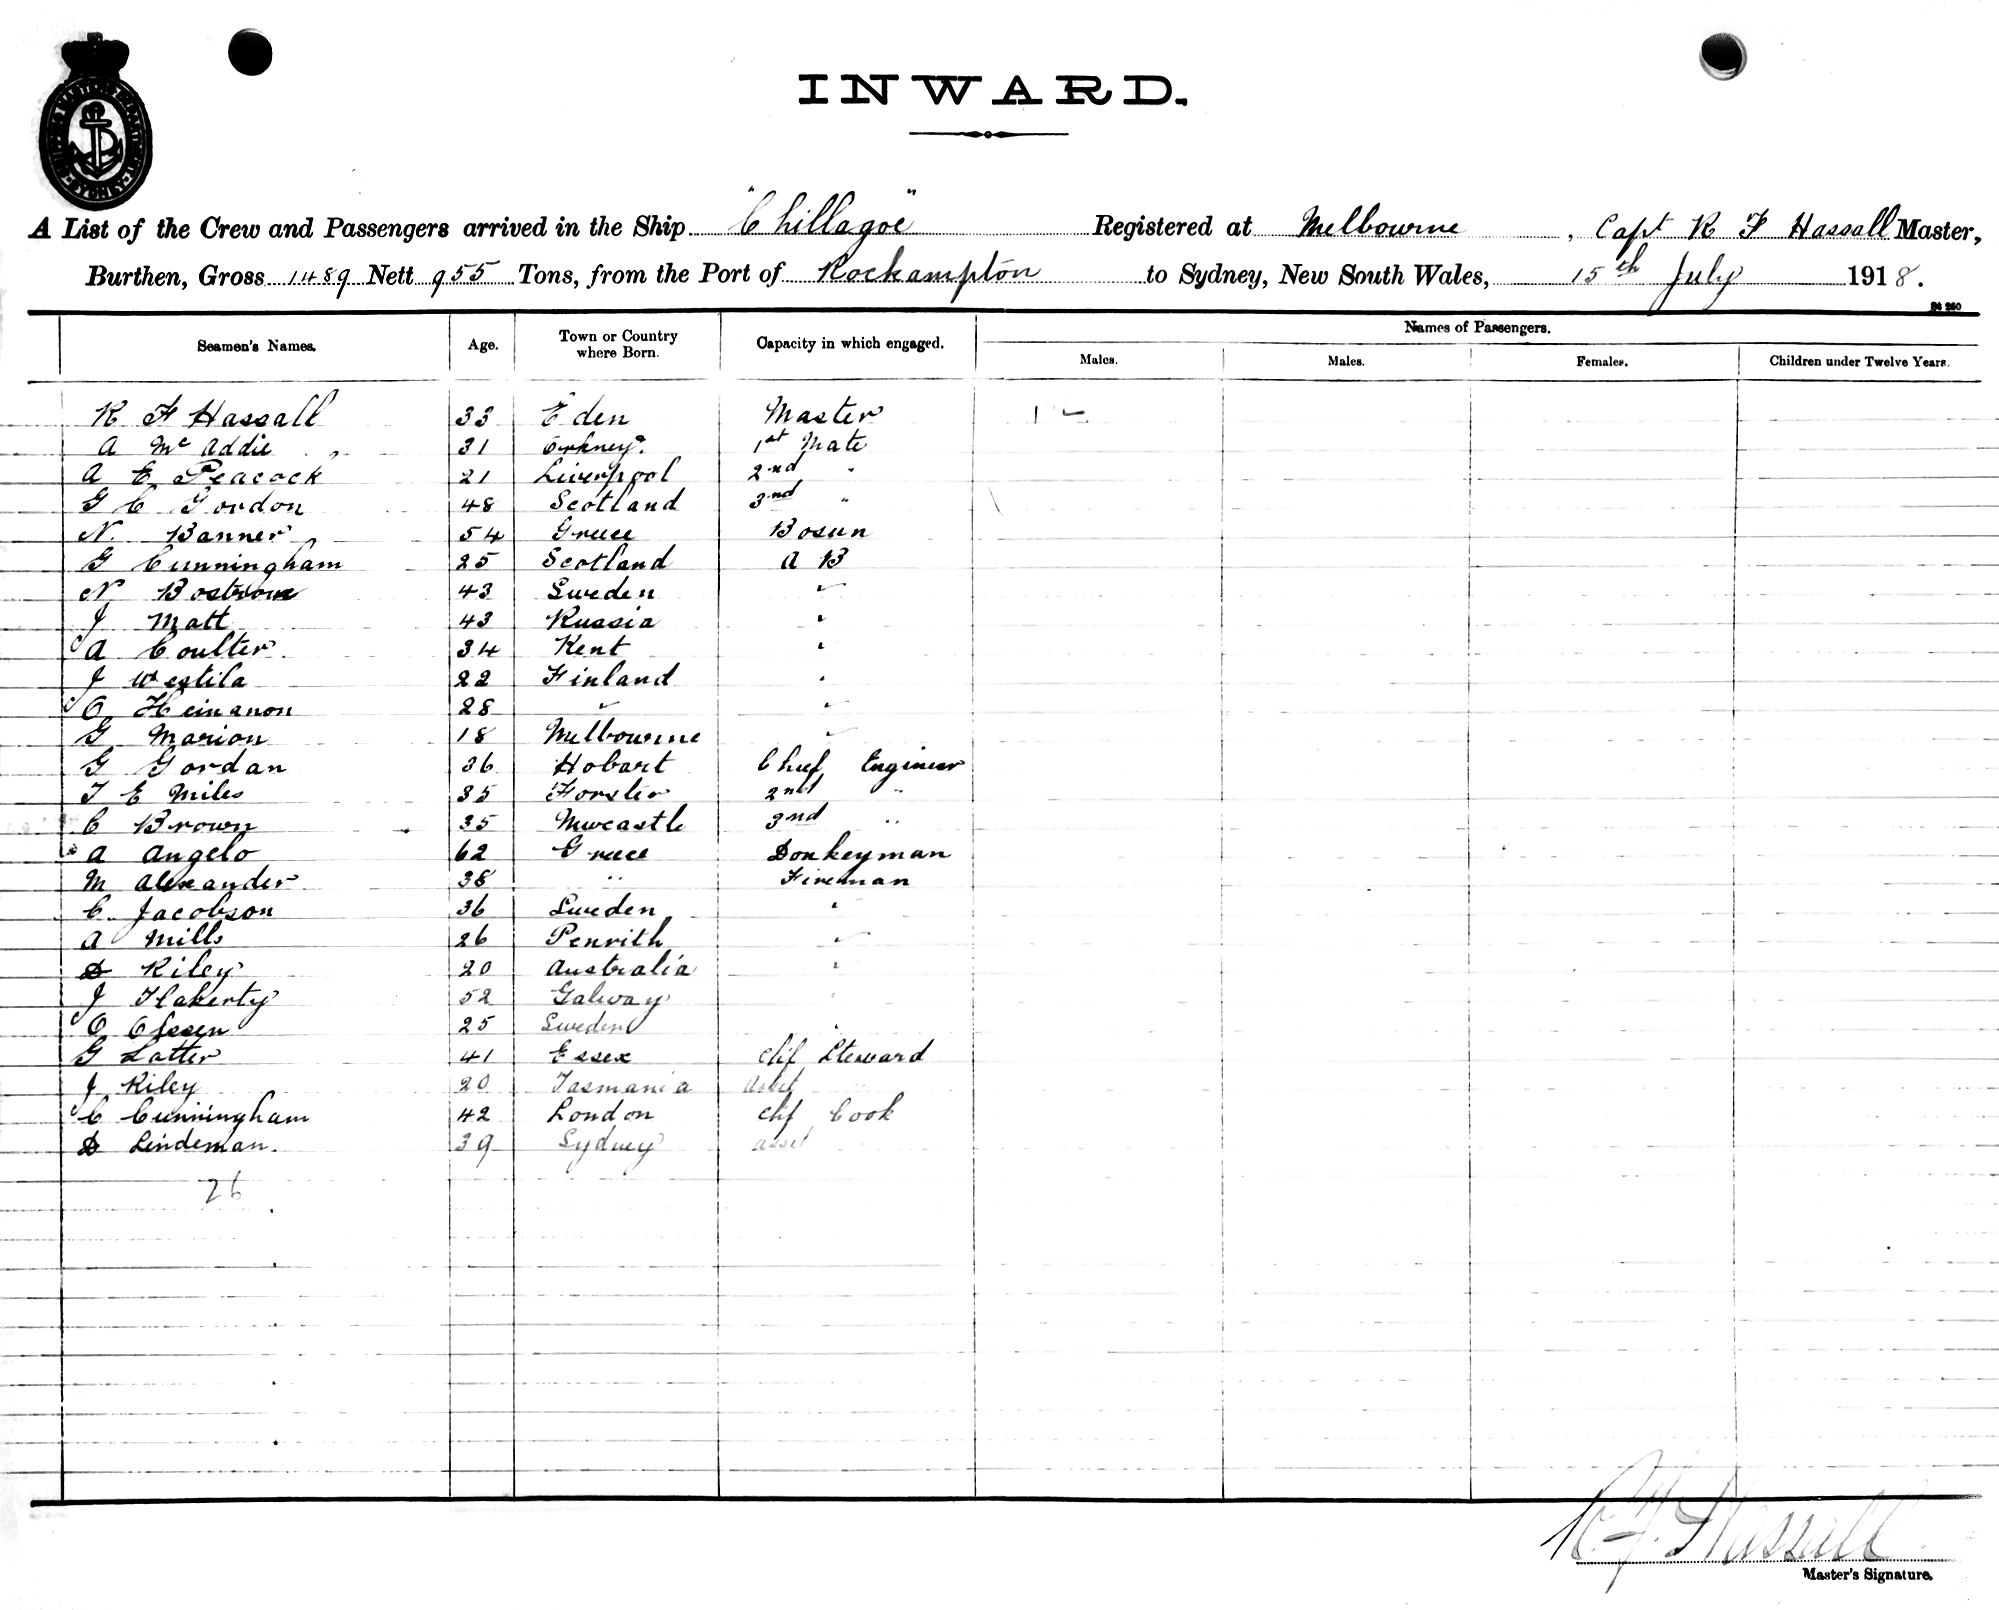 INWARD.
A List of the Crew and Passengers arrived in the Ship "Chillagoe" Registered at Melbourne, Capt R F Hassall Master,
Burthen, Gross 1489 Nett 955 Tons, from the Port of Rockampton to Sydney, New South Wales, 15th July 1918.
Names of Passengers.
Seamen's Names. Age. Town or Country where Born. Capacity in which engaged. Males. Males. Females. Children under Twelve Years.
R F Hassall 33 Eden Master
A McAddie 31 Orkney 1st Mate
A E Peacock 21 Liverpool 2nd "
G C Gordon 48 Scotland 3nd "
N. Banner 54 Greece Bosun
G Cunningham 25 Scotland A B
N Bostrom 43 Sweden "
J Matt 43 Russia "
A Coulter. 34 Kent "
J Westila 22 Finland "
O Heinanon 28 " "
G Marion 18 Melbourne "
G Gordan 36 Hobart Chief Engineer
T E Miles 35 Forster 2nd "
C Brown 35 Newcastle 3nd "
A Angelo 62 Greece Donkeyman
M Alexander 38 " Fireman
C. Jacobson 36 Sweden "
A Mills 26 Penrith "
D Riley 20 Australia "
J Flaherty 52 Galway "
O Olssen 25 Sweden "
G Latter 41 Essex Chf Steward
J Riley 20 Tasmania Asst
C Cunningham 42 London Chf Cook
D Lindeman. 39 Sydney asst
26
R. F. Hassall
Master's Signature.